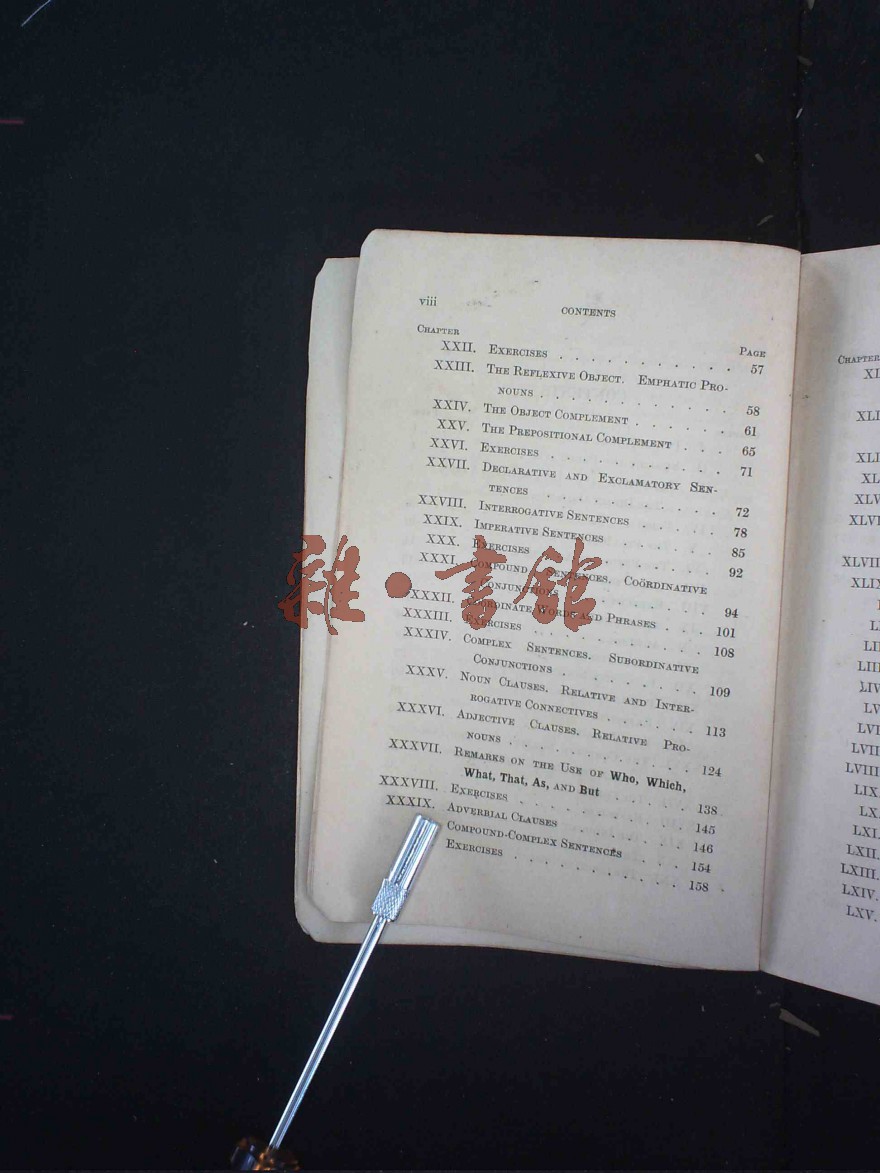 viii
CONTENTS
CHAPTER
PAGE
XXII. EXERCISES . . . . . . . . . . . 57
XXIII. THE REFLEXIVE OBJECT. EMPHATIC PRO-
NOUNS . . . . . . . . . . . . 58
XXIV. THE OBJECT COMPLEMENT . . . . . . 61
XXV. THE PREPOSITIONAL COMPLEMENT . . . 65
XXVI. EXERCISES . . . . . . . . . . . 71
XXVII. DECLARATIVE AND EXCLAMATORY SEN-
TENCES . . . . . . . . . . . 72
XXVIII. INTERROGATIVE SENTENCES . . . . . 78
XXIX. IMPERATIVE SENTENCES . . . . . . 85
XXX. EXERCISES . . . . . . . . . . . 92
XXXI. COMPOUND SENTENCES. COÖRDINATIVE
CONJUNCTIONS . . . . . . . . . 94
XXXII. COÖRDINATE WORDS AND PHRASES . . . 101
XXXIII. EXERCISES . . . . . . . . . . 108
XXXIV. COMPLEX SENTENCES. SUBORDINATIVE
CONJUNCTIONS . . . . . . . . 109
XXXV. NOUN CLAUSES. RELATIVE AND INTER-
ROGATIVE CONNECTIVES . . . . . . 113
XXXVI. ADJECTIVE CLAUSES. RELATIVE PRO-
NOUNS . . . . . . . . . . . 124
XXXVII. REMARKS ON THE USE OF Who, Which,
What, That, As, AND But . . . . . 138
XXXVIII. EXERCISES . . . . . . . . . . 145
XXXIX. ADVERBIAL CLAUSES . . . . . . . 146
COMPOUND-COMPLEX SENTENCES . . . . 154
EXERCISES . . . . . . . . . . 158
CHAPTER
XLVII
LXII.
LXIII.
LXIV.
LXV.
雜·書館